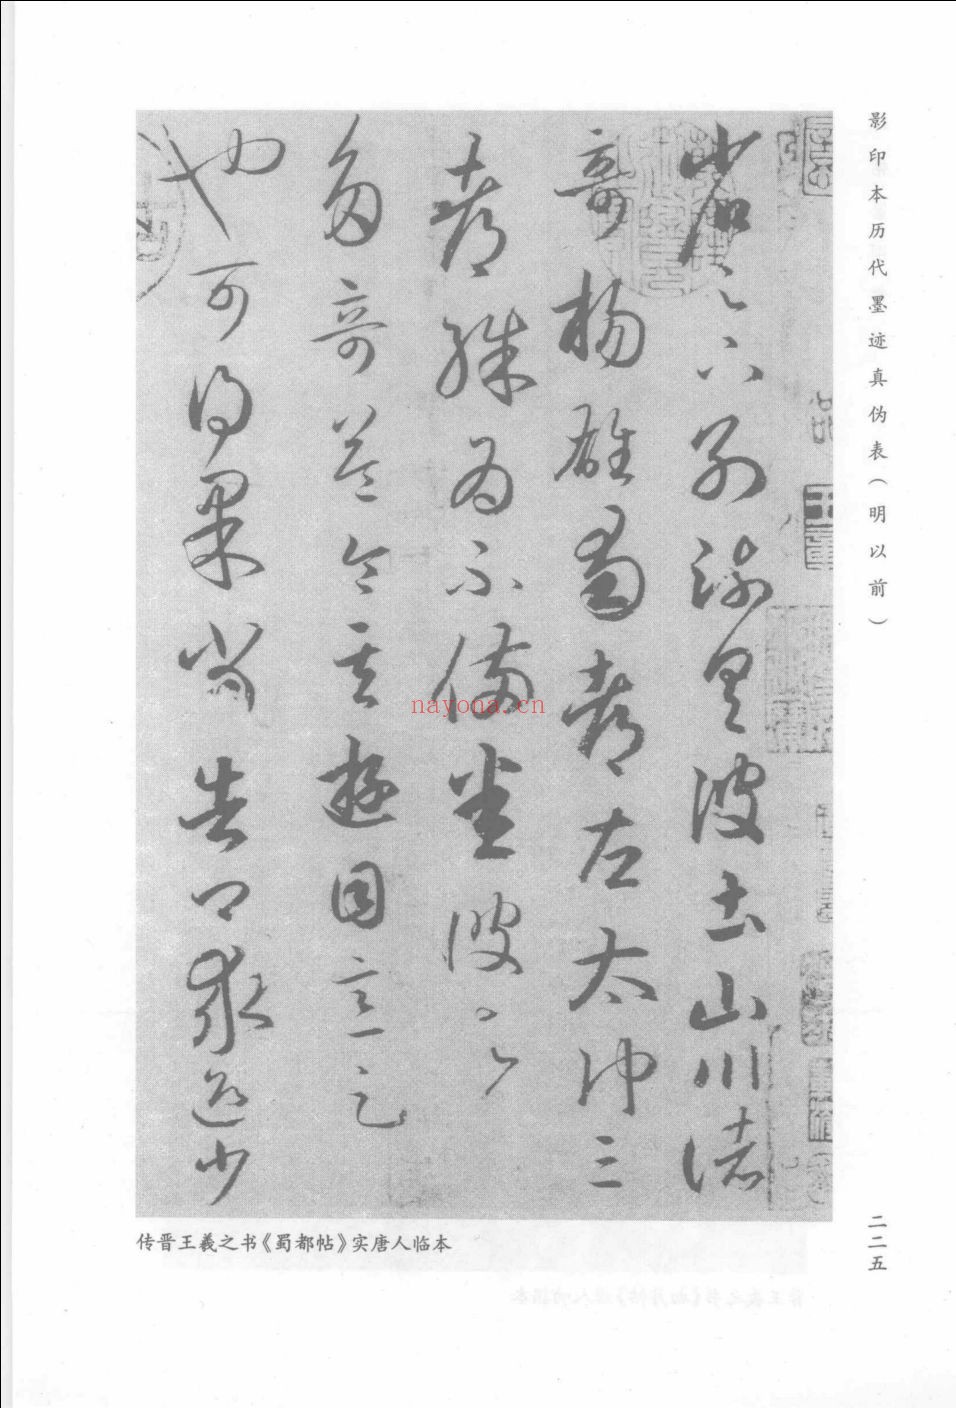 影印本历代墨迹真伪表（明以前）
省足下别疏具彼土山川諸
奇楊雄蜀都左太冲三
都殊為不備悉彼故為
多奇益令其遊目意足
也可得果當告卿求迎少
nayona.cn
传晋王羲之书《蜀都帖》实唐人临本
二二五